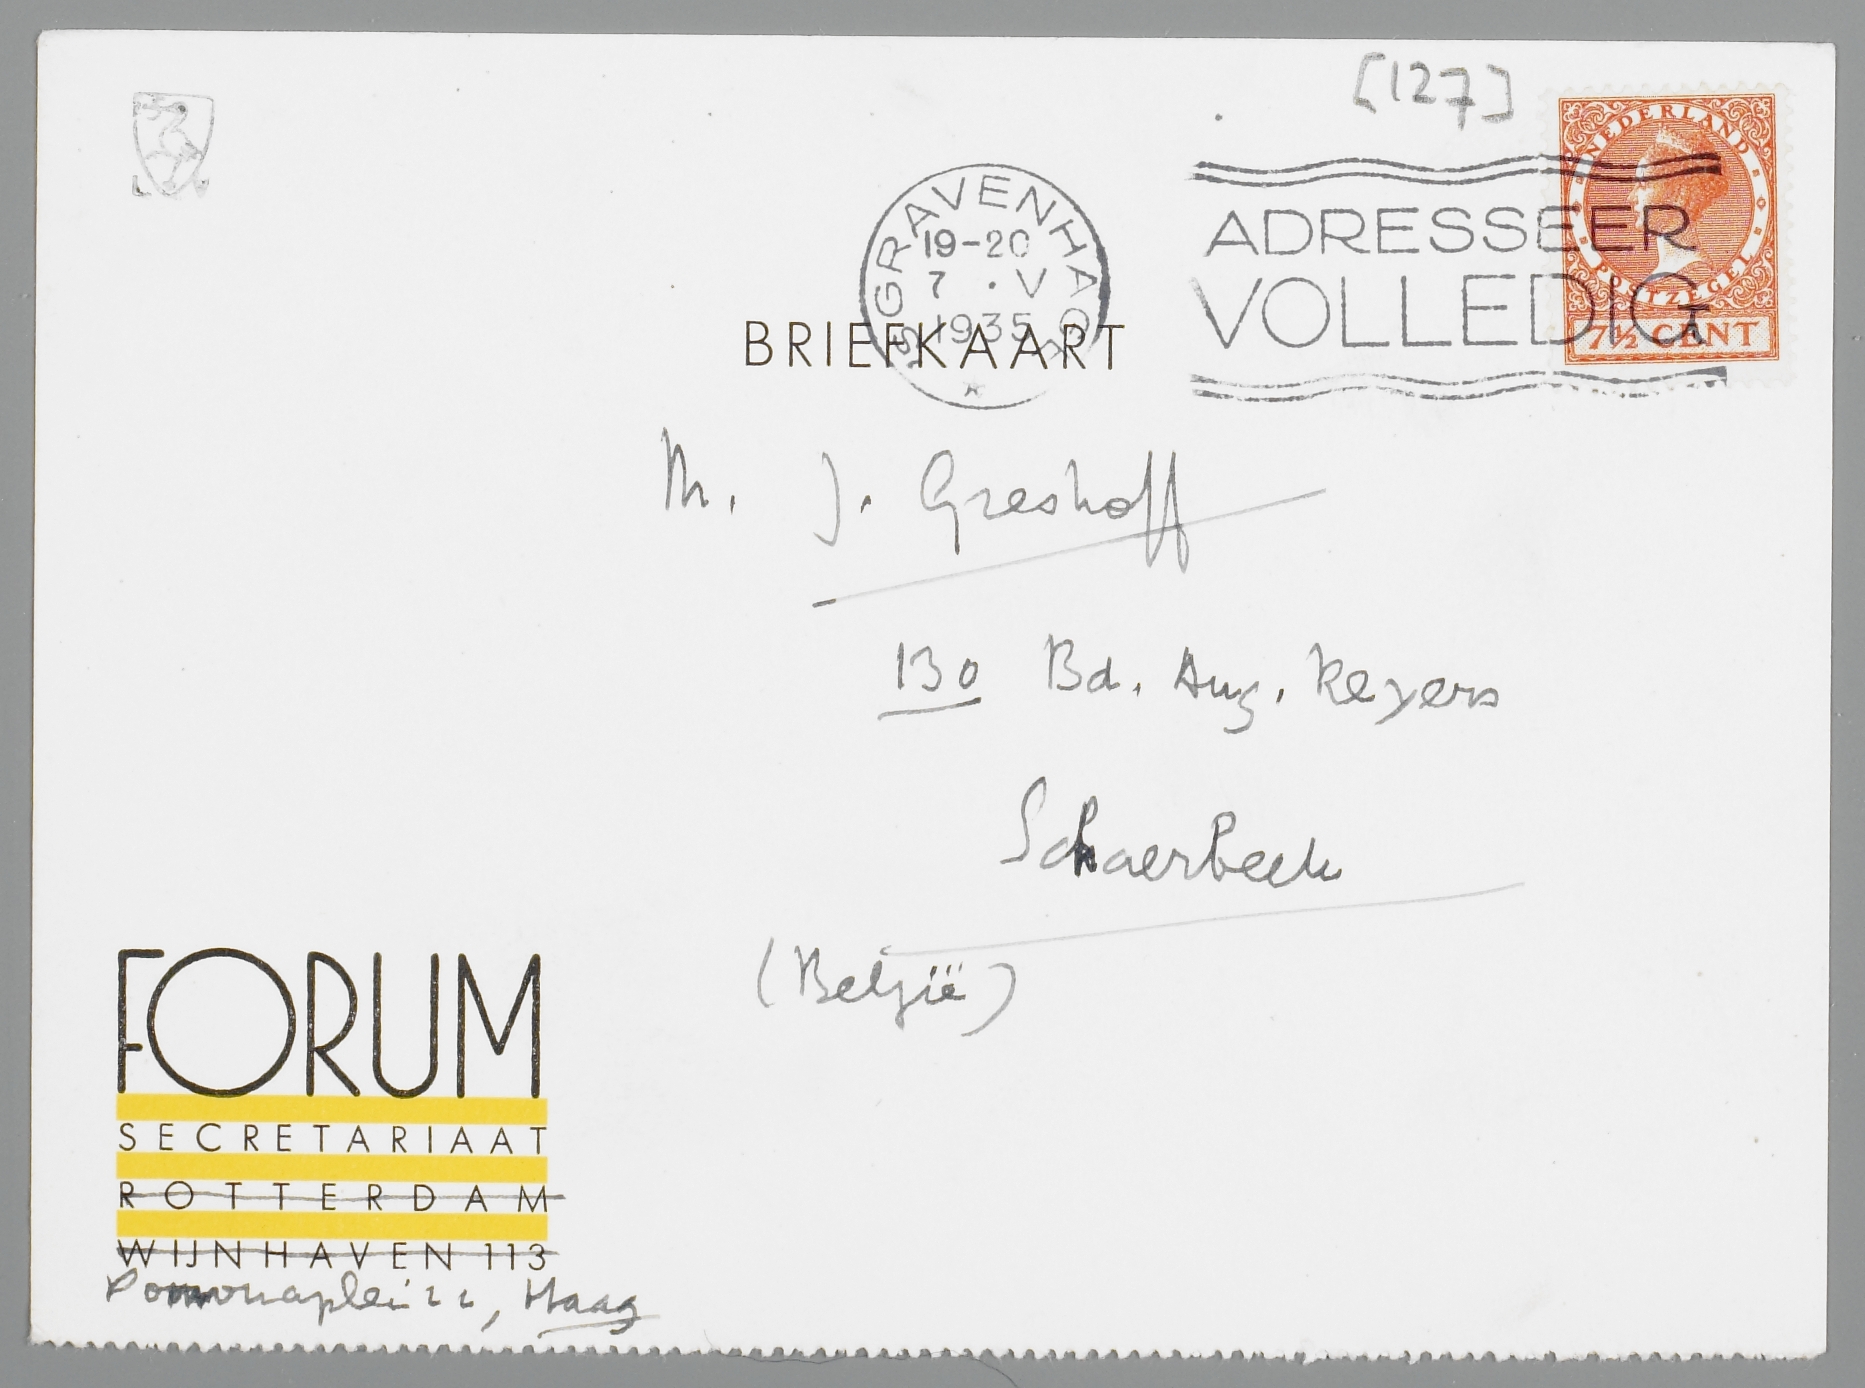 [127]
NEDERLAND
POSTZEGEL
7½ CENT
'S GRAVENHAGE
19-20
7 · V
1935
ADRESSEER
VOLLEDIG
BRIEFKAART
M. J. Greshoff
130 Bd. Aug. Reyers
Schaerbeek
(België)
FORUM
SECRETARIAAT
ROTTERDAM
WIJNHAVEN 113
Pomonaplein 22, Haag